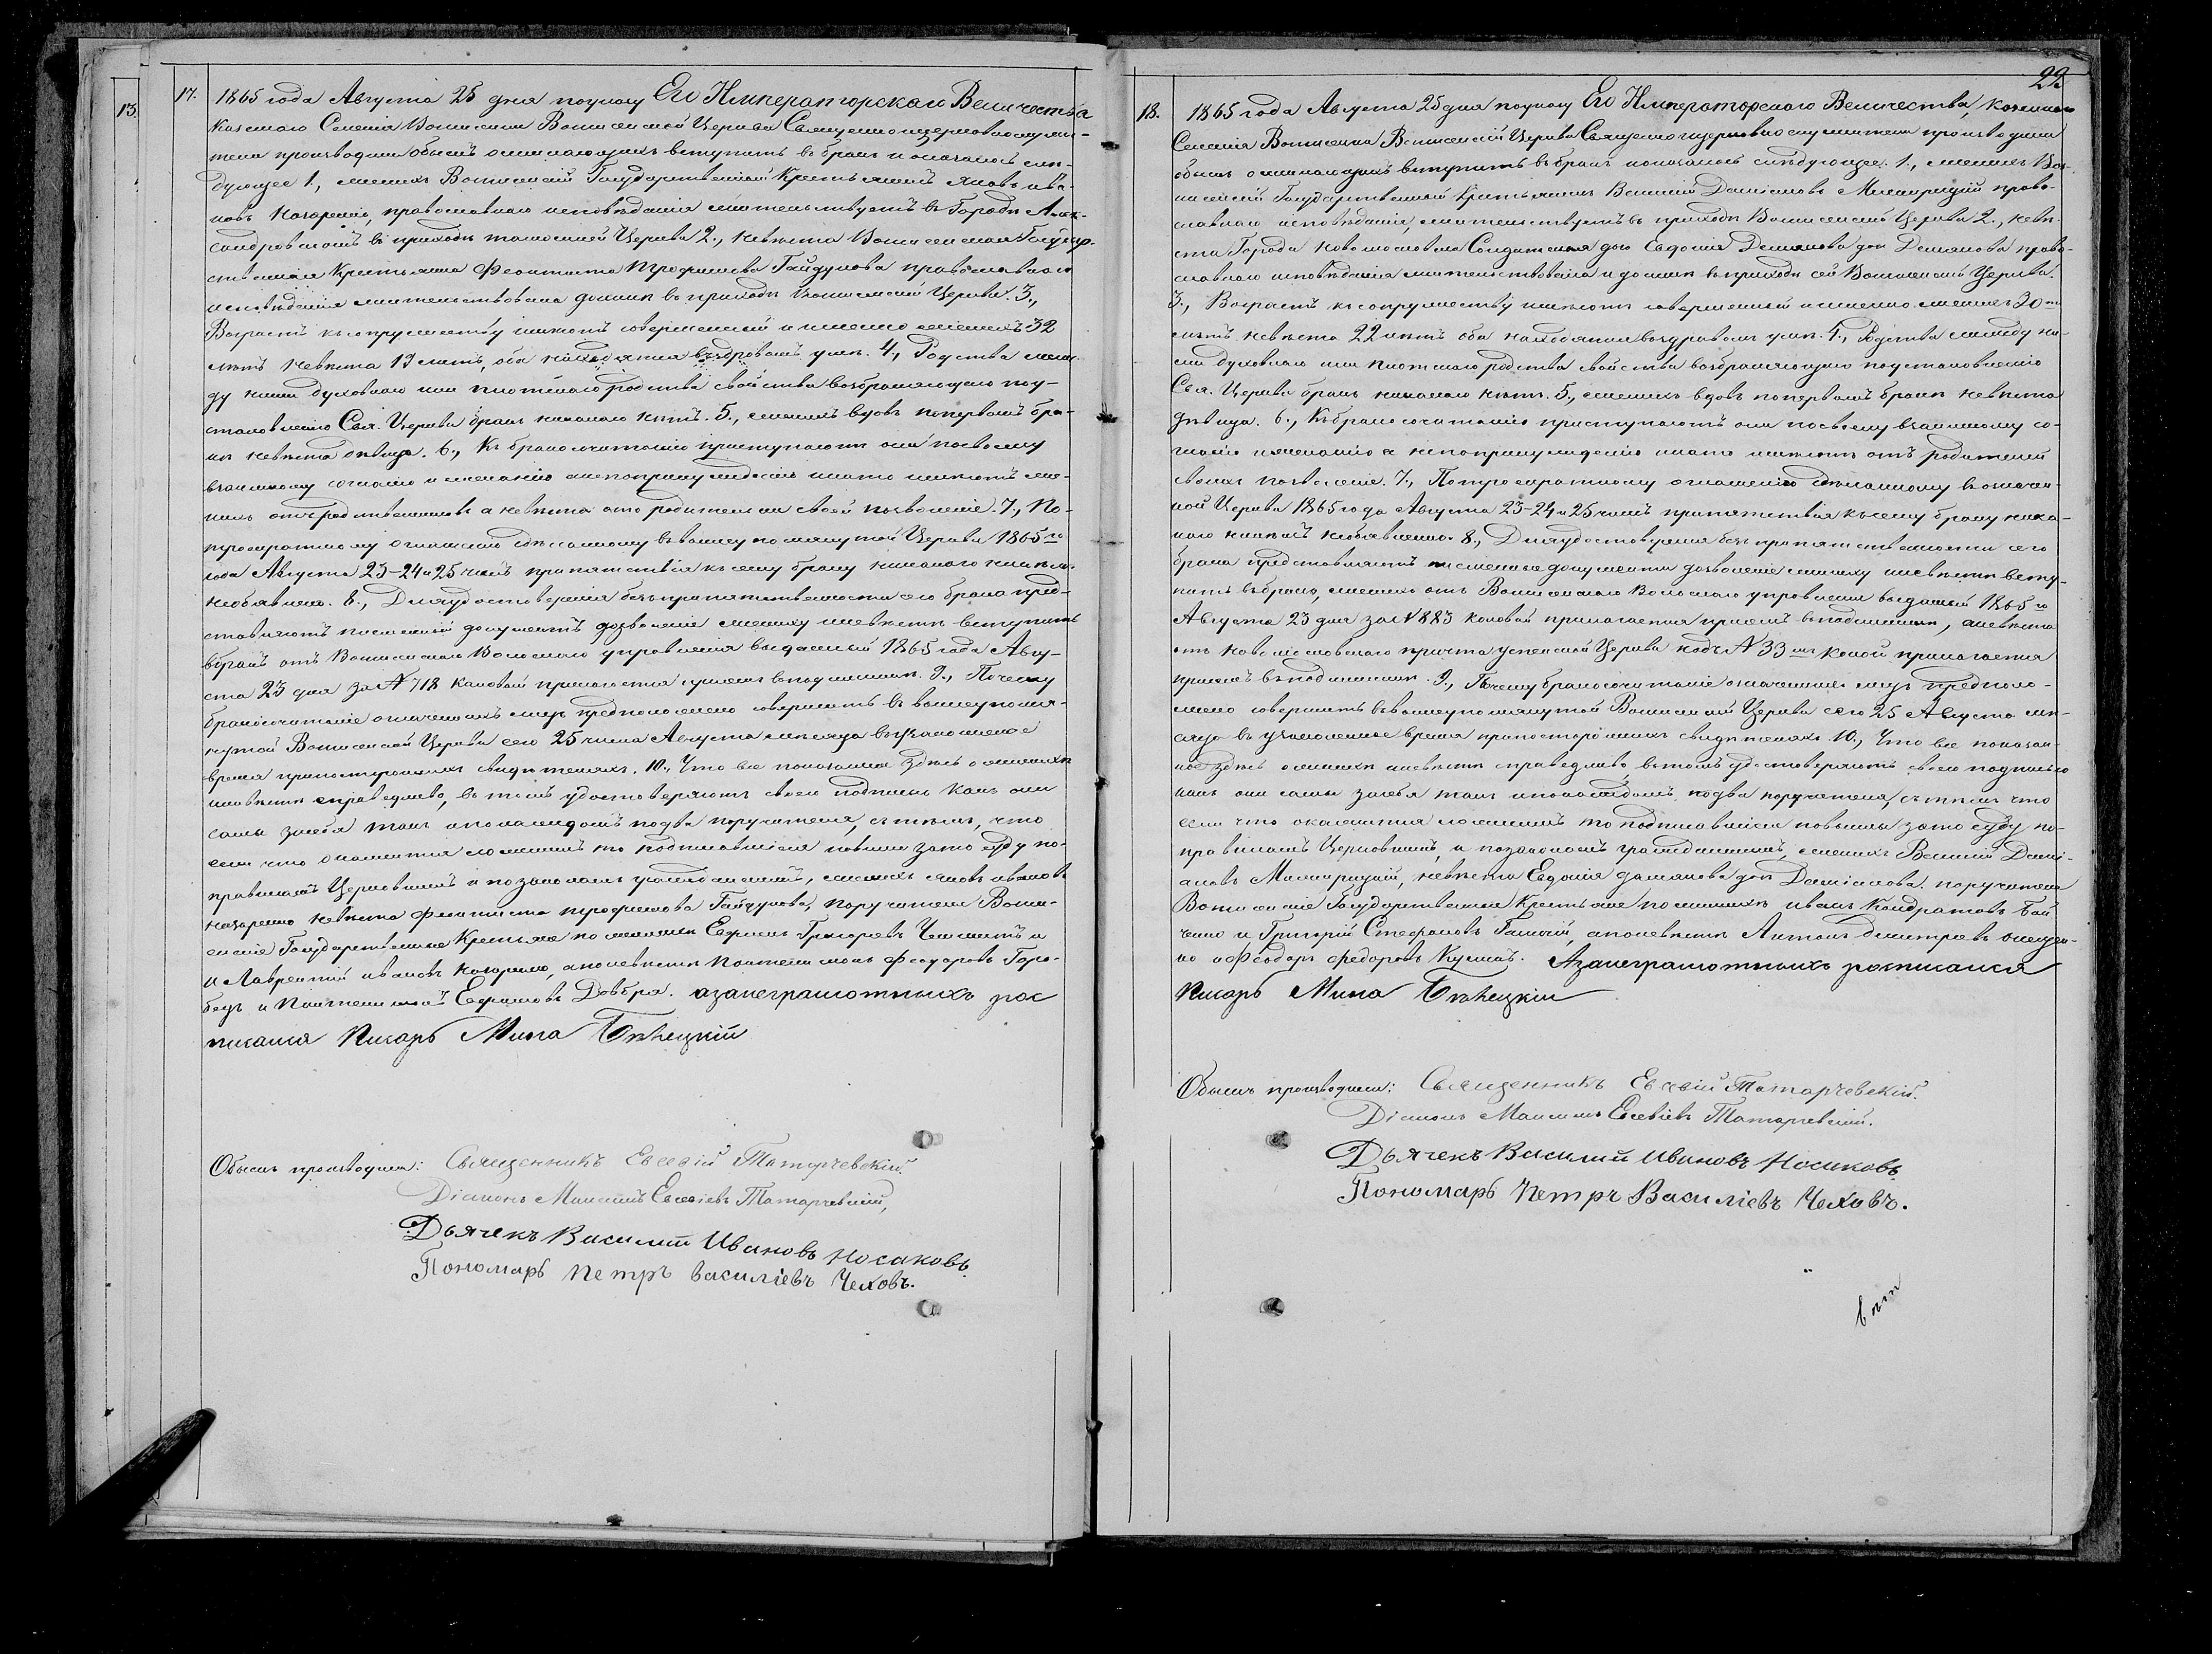 13.
17.
1865 года Августа 25 дня поуказу Его Императорскаго Величества
казеннаго Селенія Вошиевской Церкви Священноцерковнослужи-
тели производили обыскъ о желающихъ вступить въ бракъ и оказалось слѣ-
дующее 1., женихъ Государственный Крестьянинъ Яковъ Ива-
новъ Назаренко, православнаго исповѣданія жительствуетъ въ Городѣ Алек-
сандровскомъ въ приходѣ тамошней Церкви 2., невѣста Государ-
ственная Крестьянка Феоктиста Трофимова Гайдукова православнаго
исповѣданія жительствовала донынѣ въ приходѣ Церкви. 3.,
Возрастъ къ супружеству имѣютъ совершенный и именно женихъ 32
лѣтъ невѣста 19 лѣтъ, оба находятся въ здравомъ умѣ. 4., Родства меж-
ду ними духовнаго или плотскаго родства свойства возбраняющаго поу-
становленію Свя. Церкви бракъ никакого нѣтъ. 5., женихъ вдовъ попервомъ бра-
кѣ невѣста дѣвица. 6., Къ бракосочетанію приступаютъ они по своему
взаимному согласію и желанію а не по принужденію на то имѣютъ же-
нихъ отъ родственниковъ а невѣста отъ родителей своей позволеніе. 7., По-
троекратному оглашенію сдѣланному въ вышеупомянутой Церкви 1865го
года Августа 23-24 и 25 чиселъ препятствія къ сему браку никакого никѣмъ
необъявлено. 8., Для удостовѣренія безпрепятственности сего брака пред-
ставляютъ письменный документъ дозволеніе жениху и невѣстѣ вступить
вбракъ отъ Волостнаго управленія выданный 1865 года Авгу-
ста 23 дня за N 718 каковый прилагается при семъ въ подлинникѣ. 9., Почему
бракосочетаніе означенныхъ лицъ предположено совершить въ вышеупомя-
нутой Церкви сего 25 числа Августа мѣсяца въ узаконенное
время при постороннихъ свидѣтеляхъ. 10., Что все показанное здѣсь о женихѣ
и невѣстѣ справедливо, въ томъ удостовѣряютъ своею подписью какъ они
сами за себя такъ и по каждомъ по два поручителя, съ тѣмъ, что
если что окажется ложнымъ то подписавшіеся повинны за то суду по-
правиламъ Церковнымъ и по законамъ гражданскимъ, женихъ Яковъ Ивановъ
Назаренко невѣста Феоктиста Трофимова Гайдукова, поручители
Государственные Крестьяне по женихѣ Ефимъ Григорьевъ и
и Лаврентій Ивановъ Назаренко, а по невѣстѣ Пантелеимонъ Феодоровъ Горо-
бецъ и Пантелеимонъ Ефимовъ Довбря. а за неграмотныхъ рос
писался Писарь Мина Бѣлецкій
Обыскъ производили: Священникъ Евсевій Татарчевскій.
Діаконъ Максимъ Евсевіевъ Татарчевскій,
Дьячекъ Василий Ивановъ Носиковъ.
Пономарь Петръ Василіевъ Чеховъ.
22
18.
1865 года Августа 25 дня поуказу Его Императорскаго Величества, казеннаго
Селенія Церкви Священноцерковнослужители производили
обыскъ о желающихъ вступить въ бракъ и оказалось слѣдующее. 1., женихъ
Государственный Крестьянинъ Василій Даміановъ право-
славнаго исповѣданія, жительствуетъ въ приходѣ Церкви 2., невѣ-
ста Города Новомосковска Солдатская дочь Евдокія Демянова дочь Демянова право-
славнаго исповѣданія жительствовала и донынѣ въ приходѣ сей Церкви.
3., Возрастъ къ супружеству имѣютъ совершенный и именно женихъ 30ть
лѣтъ невѣста 22 лѣтъ оба находятся въ здравомъ умѣ. 4., Родства между ни-
ми духовнаго или плотскаго родства свойства возбраняющаго по установленію
Свя. Церкви бракъ никакого нѣтъ. 5., женихъ вдовъ попервомъ бракѣ невѣста
дѣвица. 6., Къ бракосочетанію приступаютъ они по своему взаимному со-
гласію и желанію а не по принужденію на то имѣютъ отъ родителей
своихъ позволеніе. 7., По троекратному оглашенію сдѣланному въ означен-
ной Церкви 1865 года Августа 23-24 и 25 чиселъ препятствія къ сему браку ника-
кого никѣмъ необъявлено. 8., Для удостовѣренія безпрепятственности сего
брака представляютъ письменные документы дозволеніе жениху и невѣстѣ всту-
пить въ бракъ, женихъ отъ Волостнаго управленія выданный 1865го
Августа 23 дня за N 883 каковый прилагается при семъ въ подлинникѣ, а невѣста
отъ Новомосковскаго причта Успенской Церкви подъ N 33мъ какой прилагается
при семъ въ подлинникѣ. 9., Почему бракосочетаніе означенныхъ лицъ предполо-
жено совершить въ вышеупомянутой Церкви сего 25 Августа мѣ-
сяца въ узаконенное время при постороннихъ свидѣтеляхъ. 10., Что все показан-
ное здѣсь о женихѣ и невѣстѣ справедливо, въ томъ удостовѣряютъ своею подписью
какъ они сами за себя такъ и по каждомъ по два поручителя, съ тѣмъ что
если что окажется ложнымъ то подписавшіеся повинны за то суду по-
правиламъ Церковнымъ, и по законамъ гражданскимъ, женихъ Василій Дамі-
ановъ невѣста Евдокія Дамянова дочь Даміанова. поручители
Государственные Крестьяне по женихѣ Иванъ Кондратовъ Бой
ченко и Григорій Стефановъ а по невѣстѣ Антонъ Дмитревъ
и Ѳеодоръ Федоровъ Кушиль. А за неграмотныхъ росписался
Писарь Мина Бѣлецкій
Обыскъ производили: Священникъ Евсевій Татарчевскій.
Діаконъ Максимъ Евсевіевъ Татарчевскій.
Дьячекъ Василий Ивановъ Носиковъ
Пономарь Петръ Василіевъ Чеховъ.